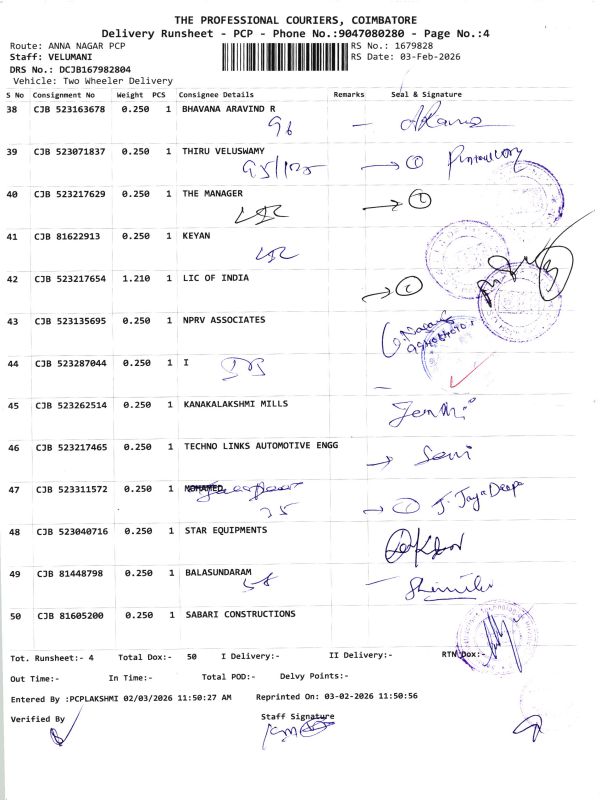 THE PROFESSIONAL COURIERS, COIMBATORE
Delivery Runsheet - PCP - Phone No.:9047080280 - Page No.:4
Route: ANNA NAGAR PCP RS No.: 1679828
Staff: VELUMANI RS Date: 03-Feb-2026
DRS No.: DCJB167982804
Vehicle: Two Wheeler Delivery
S No Consignment No Weight PCS Consignee Details Remarks Seal & Signature
38 CJB 523163678 0.250 1 BHAVANA ARAVIND R
96
39 CJB 523071837 0.250 1 THIRU VELUSWAMY
40 CJB 523217629 0.250 1 THE MANAGER
LIC
41 CJB 81622913 0.250 1 KEYAN
LIC
42 CJB 523217654 1.210 1 LIC OF INDIA
43 CJB 523135695 0.250 1 NPRV ASSOCIATES
44 CJB 523287044 0.250 1 I
45 CJB 523262514 0.250 1 KANAKALAKSHMI MILLS
46 CJB 523217465 0.250 1 TECHNO LINKS AUTOMOTIVE ENGG
47 CJB 523311572 0.250 1 MOHAMED
35 J. Jaya Deepa
48 CJB 523040716 0.250 1 STAR EQUIPMENTS
49 CJB 81448798 0.250 1 BALASUNDARAM
58
50 CJB 81605200 0.250 1 SABARI CONSTRUCTIONS
Tot. Runsheet:- 4 Total Dox:- 50 I Delivery:- II Delivery:- RTN Dox:-
Out Time:- In Time:- Total POD:- Delvy Points:-
Entered By :PCPLAKSHMI 02/03/2026 11:50:27 AM Reprinted On: 03-02-2026 11:50:56
Verified By Staff Signature